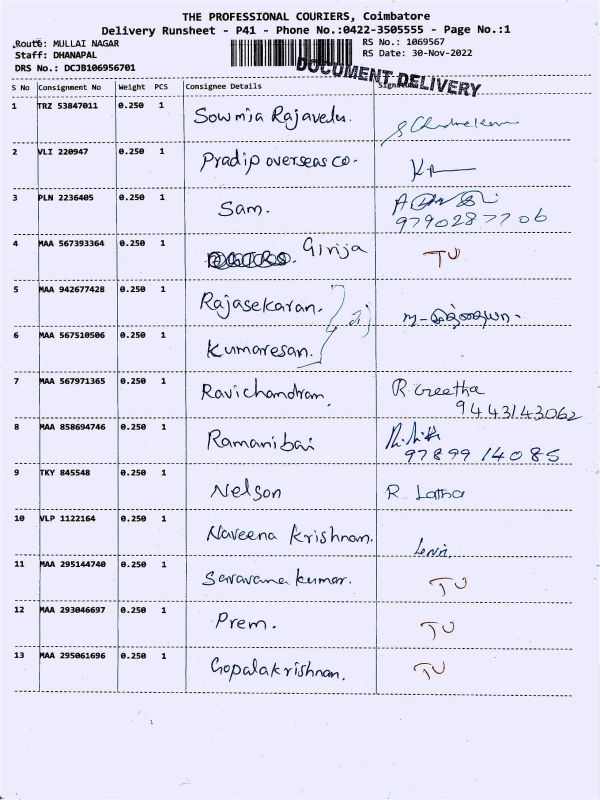 THE PROFESSIONAL COURIERS, Coimbatore
Delivery Runsheet - P41 - Phone No.:0422-3505555 - Page No.:1
Route: MULLAI NAGAR
RS No.: 1069567
Staff: DHANAPAL
RS Date: 30-Nov-2022
DRS No.: DCJB106956701
DOCUMENT DELIVERY
S No Consignment No Weight PCS Consignee Details Signature
1 TRZ 53847011 0.250 1 Sowmia Rajavelu.
2 VLI 220947 0.250 1 Pradip overseas co.
3 PLN 2236405 0.250 1 Sam.
9790287706
4 MAA 567393364 0.250 1 Girija TU
5 MAA 942677428 0.250 1 Rajasekaran.
6 MAA 567510506 0.250 1 Kumaresan.
7 MAA 567971365 0.250 1 Ravichandran. R. Geetha
9443143062
8 MAA 858694746 0.250 1 Ramanibai
9789914085
9 TKY 845548 0.250 1 Nelson R. Latha
10 VLP 1122164 0.250 1 Naveena Krishnan.
11 MAA 295144740 0.250 1 Saravana kumar. TU
12 MAA 293046697 0.250 1 Prem. TU
13 MAA 295061696 0.250 1 Gopalakrishnan. TU